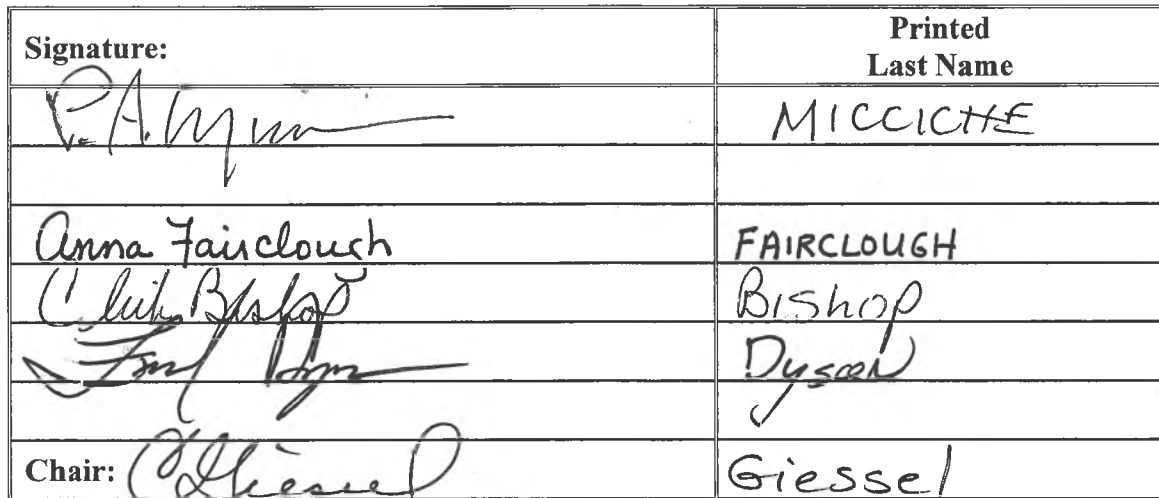 Signature: Printed
Last Name
P. A. MICCICHE
Anna Fairclough FAIRCLOUGH
Click Bishop Bishop
Fred Dyson Dyson
Chair: C Giessel Giessel